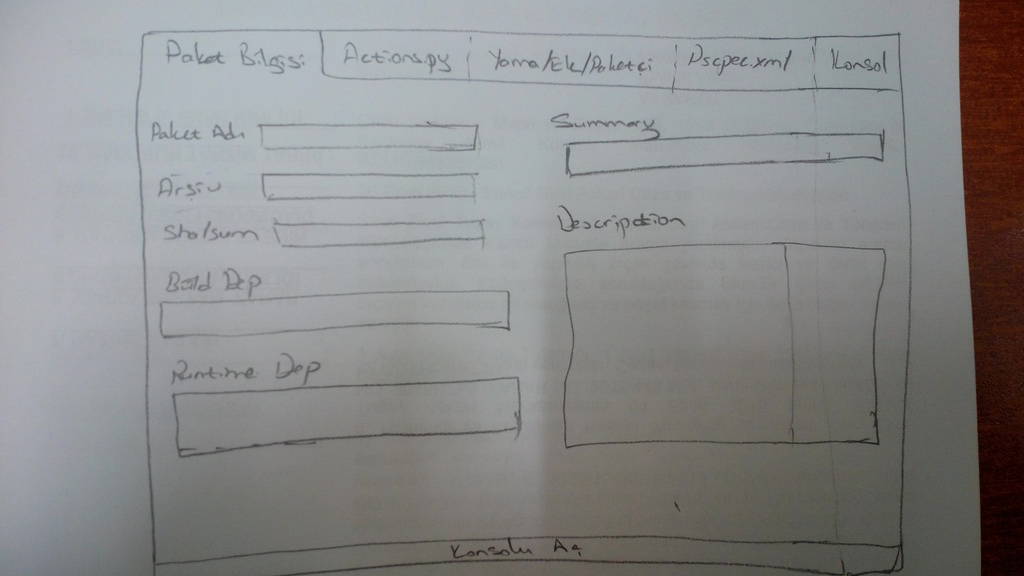 Paket Bilgisi Actions.py Yama/Ek/Paketçi Pspec.xml Konsol
Paket Adı
Arşiv
Sha1sum
Build Dep
Runtime Dep
Summary
Description
Konsolu Aç